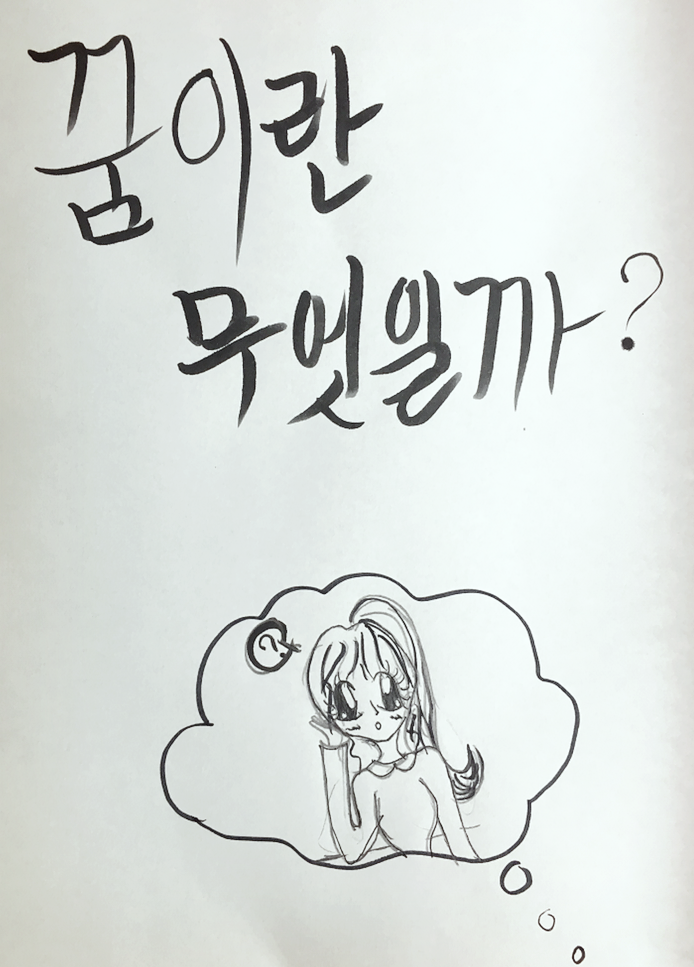 꿈이란
무엇일까?
?